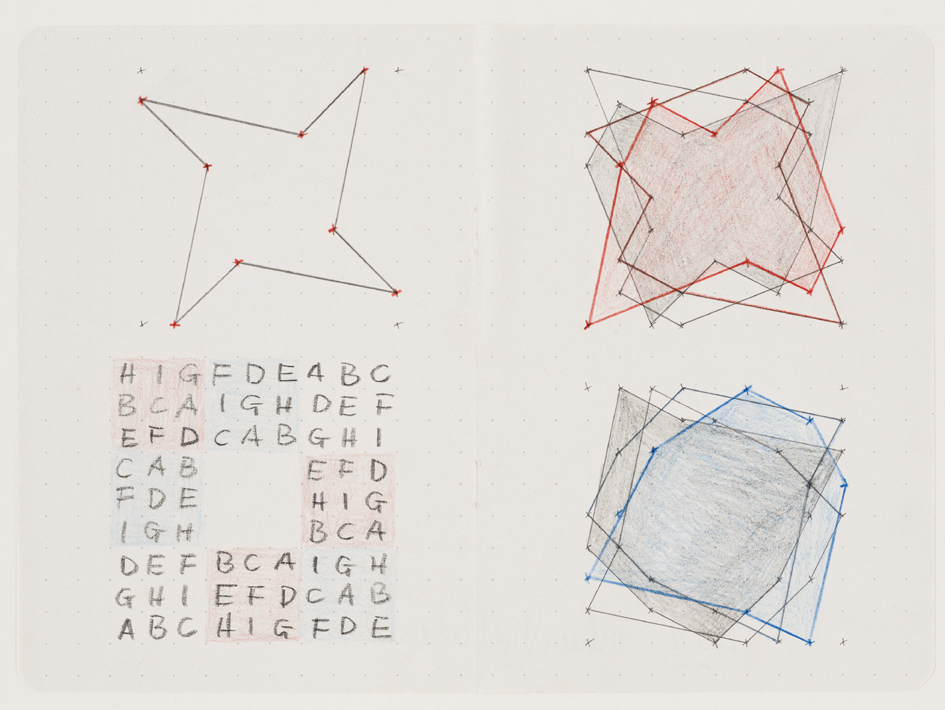 H I G F D E A B C
B C A I G H D E F
E F D C A B G H I
C A B E F D
F D E H I G
I G H B C A
D E F B C A I G H
G H I E F D C A B
A B C H I G F D E